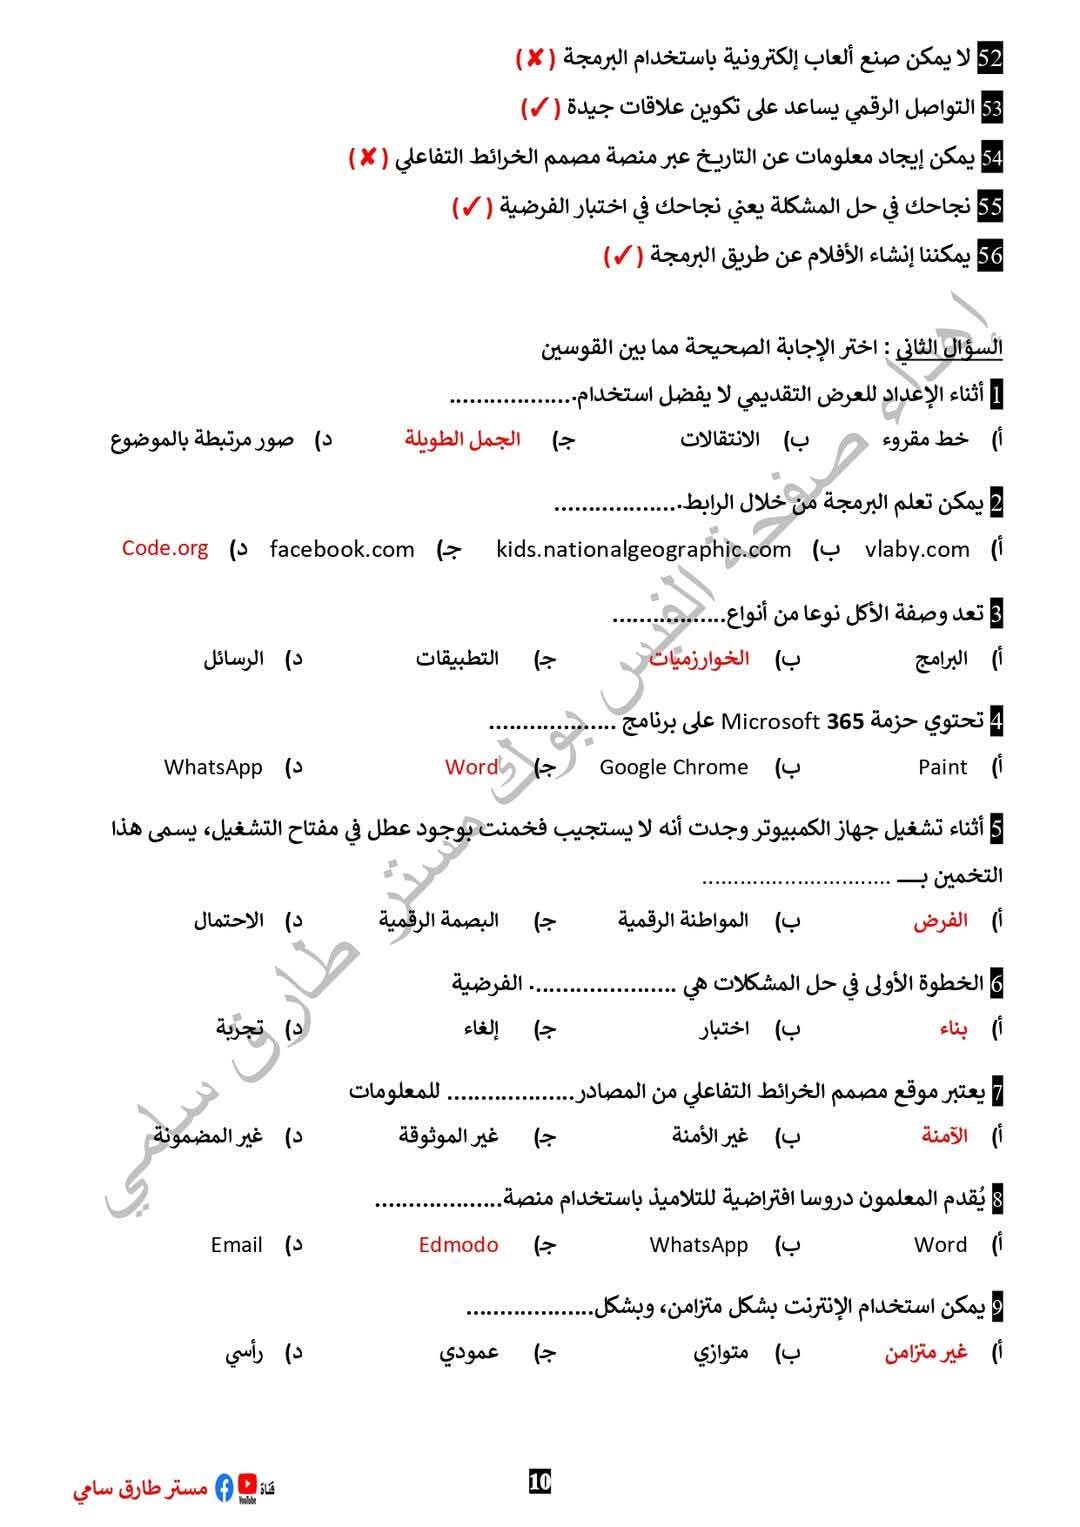 52 لا يمكن صنع ألعاب إلكترونية باستخدام البرمجة (✘)
53 التواصل الرقمي يساعد على تكوين علاقات جيدة (✓)
54 يمكن إيجاد معلومات عن التاريخ عبر منصة مصمم الخرائط التفاعلي (✘)
55 نجاحك في حل المشكلة يعني نجاحك في اختبار الفرضية (✓)
56 يمكننا إنشاء الأفلام عن طريق البرمجة (✓)
السؤال الثاني : اختر الإجابة الصحيحة مما بين القوسين
1 أثناء الإعداد للعرض التقديمي لا يفضل استخدام..................
أ) خط مقروء ب) الانتقالات جـ) الجمل الطويلة د) صور مرتبطة بالموضوع
2 يمكن تعلم البرمجة من خلال الرابط..................
أ) vlaby.com ب) kids.nationalgeographic.com جـ) facebook.com د) Code.org
3 تعد وصفة الأكل نوعا من أنواع.................
أ) البرامج ب) الخوارزميات جـ) التطبيقات د) الرسائل
4 تحتوي حزمة Microsoft 365 على برنامج ...................
أ) Paint ب) Google Chrome جـ) Word د) WhatsApp
5 أثناء تشغيل جهاز الكمبيوتر وجدت أنه لا يستجيب فخمنت بوجود عطل في مفتاح التشغيل، يسمى هذا
التخمين بـــ ..............................
أ) الفرض ب) المواطنة الرقمية جـ) البصمة الرقمية د) الاحتمال
6 الخطوة الأولى في حل المشكلات هي ...................... الفرضية
أ) بناء ب) اختبار جـ) إلغاء د) تجربة
7 يعتبر موقع مصمم الخرائط التفاعلي من المصادر................... للمعلومات
أ) الآمنة ب) غير الأمنة جـ) غير الموثوقة د) غير المضمونة
8 يُقدم المعلمون دروسا افتراضية للتلاميذ باستخدام منصة...................
أ) Word ب) WhatsApp جـ) Edmodo د) Email
9 يمكن استخدام الإنترنت بشكل متزامن، وبشكل...................
أ) غير متزامن ب) متوازي جـ) عمودي د) رأسي
إهداء صفحة الفيس بوك مستر طارق سامي
10
قناة YouTube مستر طارق سامي